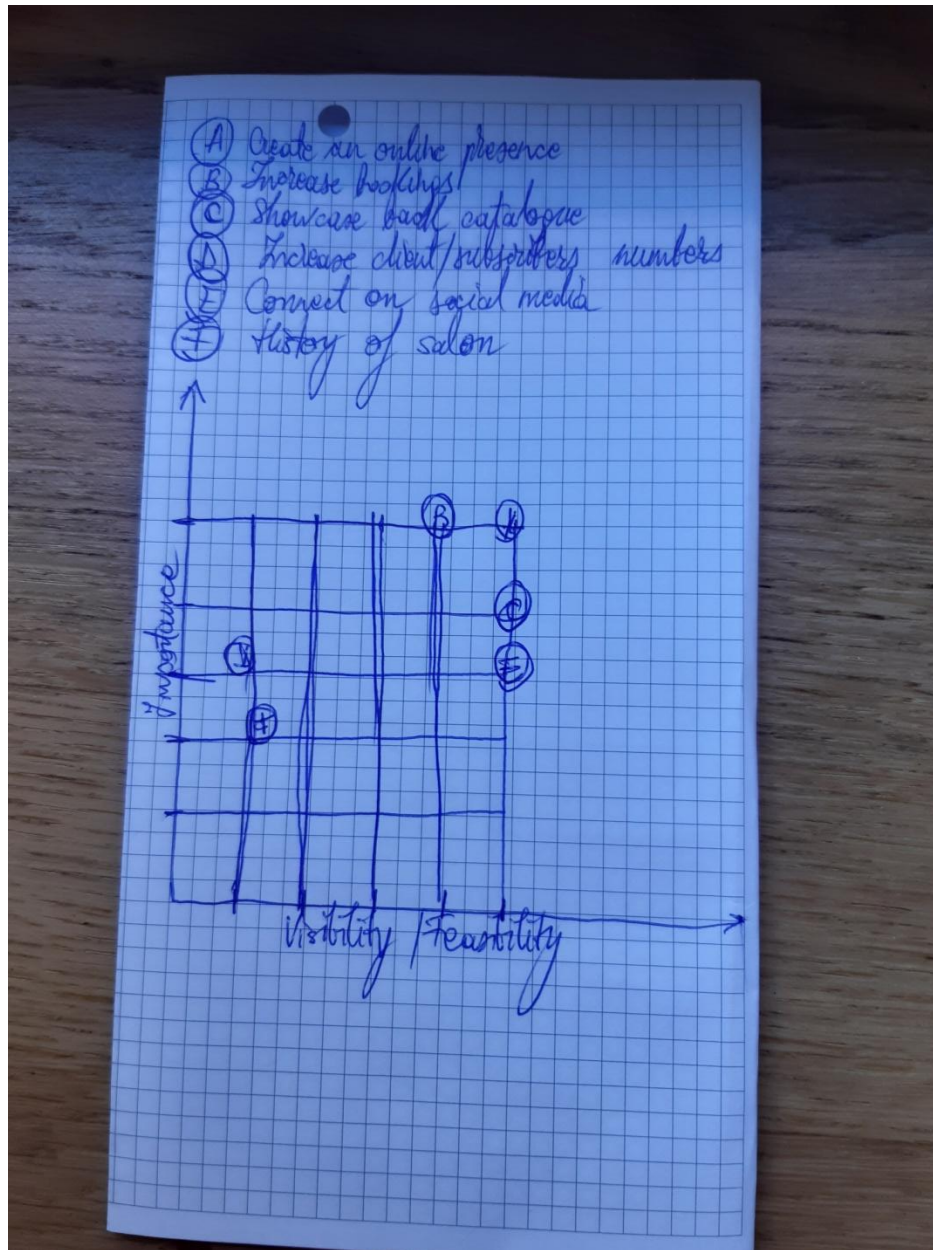 A Create an online presence
B Increase bookings
C Showcase back catalogue
D Increase client/subscribers numbers
E Connect on social media
F History of salon
B A
C
Importance
D E
F
Visibility / Feasibility